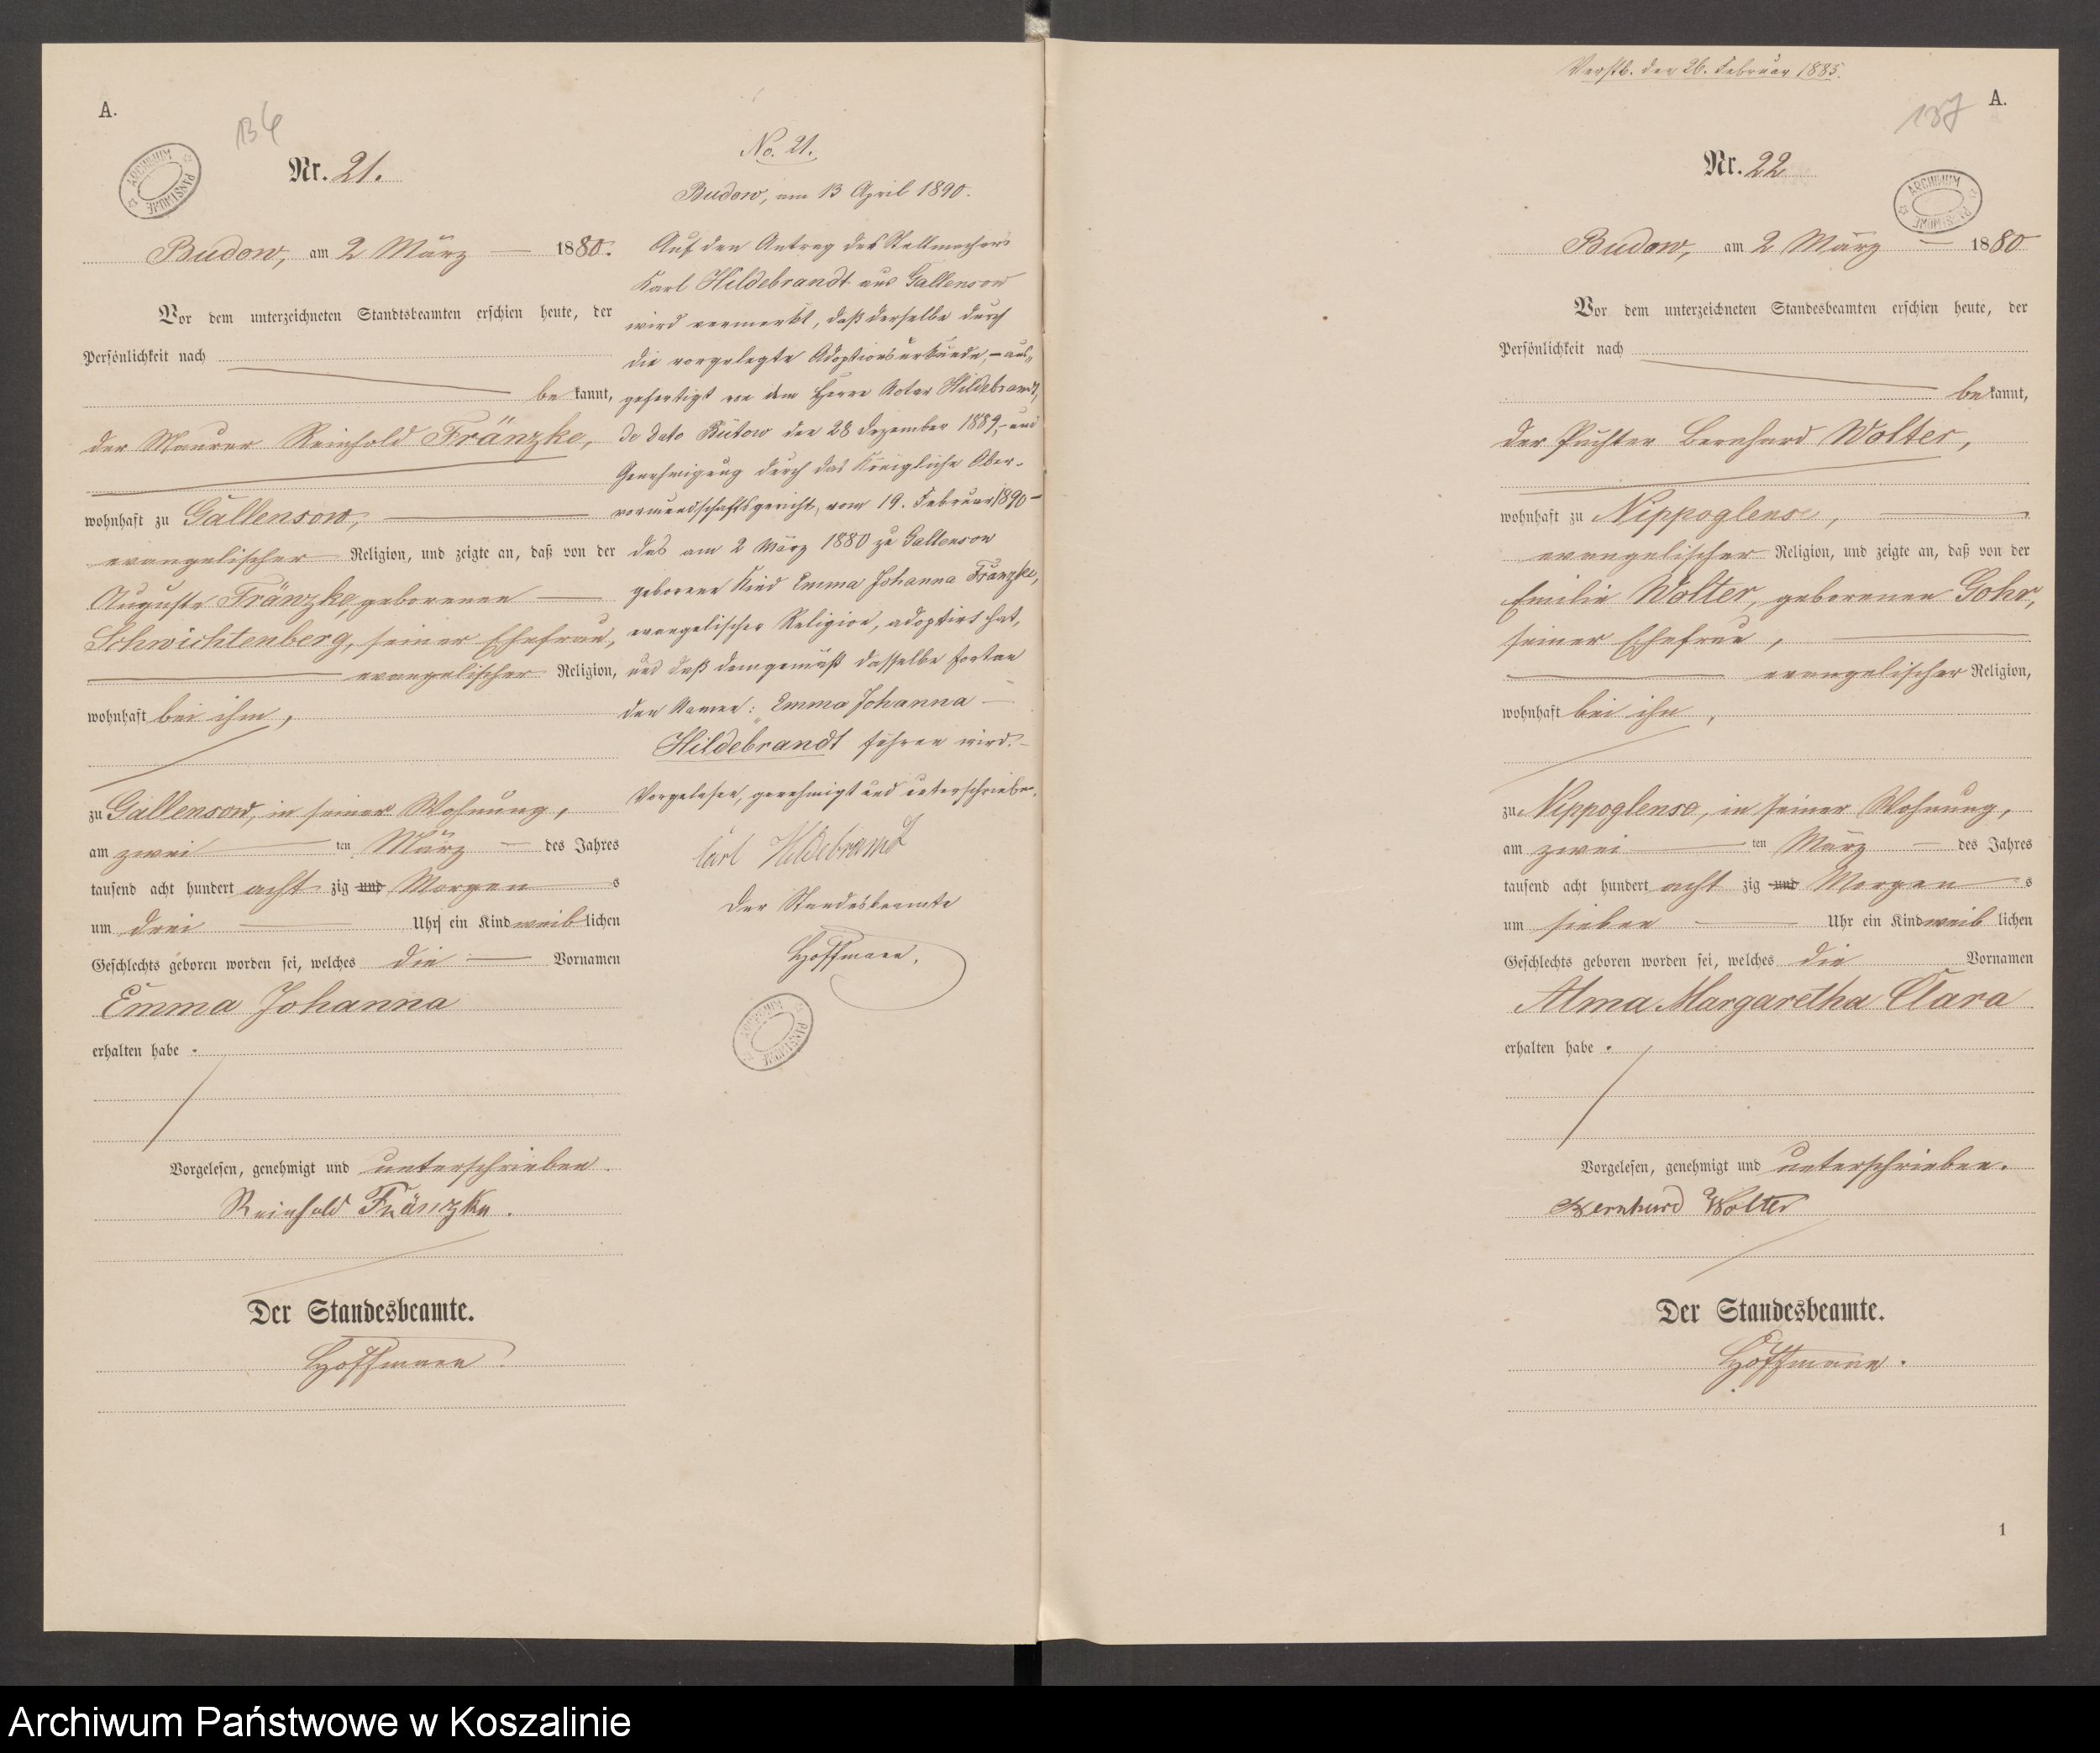 A.
136
Nr. 21.
Budow, am 2 März 1880.
Vor dem unterzeichneten Standtsbeamten erschien heute, der
Persönlichkeit nach
bekannt,
der Maurer Reinhold Fränzke,
wohnhaft zu Gallensow,
evangelischer Religion, und zeigte an, daß von der
Auguste Fränzke, geborenen
Schwichtenberg, seiner Ehefrau,
evangelischer Religion,
wohnhaft bei ihm,
zu Gallensow, in seiner Wohnung,
am zwei ten März des Jahres
tausend acht hundert acht zig und Morgens
um drei Uhr ein Kind weiblichen
Geschlechts geboren worden sei, welches die Vornamen
Emma Johanna
erhalten habe.
Vorgelesen, genehmigt und unterschrieben.
Reinhold Fränzke.
Der Standesbeamte.
Hoffmann.
No. 21.
Budow, am 13 April 1890.
Auf den Antrag des Stellmachers
Karl Hildebrandt aus Gallensow
wird vermerkt, daß derselbe durch
die vorgelegte Adoptionsurkunde, – aus-
gefertigt von dem Herrn Notar Hildebrandt,
de dato Bütow den 28 Dezember 1889, – und
Genehmigung durch das Königliche Ober-
vormundschaftsgericht, vom 19. Februar 1890 –
das am 2 März 1880 zu Gallensow
geborene Kind Emma Johanna Fränzke,
evangelischer Religion, adoptirt hat,
und daß demgemäß dasselbe fortan
den Namen: Emma Johanna
Hildebrandt führen wird. –
Vorgelesen, genehmigt und unterschrieben.
Carl Hildebrandt
Der Standesbeamte
Hoffmann.
ARCHIWUM PAŃSTWOWE
Verstb. den 26. Februar 1885.
A.
137
Nr. 22
ARCHIWUM PAŃSTWOWE
Budow, am 2 März 1880
Vor dem unterzeichneten Standesbeamten erschien heute, der
Persönlichkeit nach
bekannt,
der Pächter Bernhard Wolter,
wohnhaft zu Nippoglense,
evangelischer Religion, und zeigte an, daß von der
Emilie Wolter, geborenen Gohr,
seiner Ehefrau,
evangelischer Religion,
wohnhaft bei ihm,
zu Nippoglense, in seiner Wohnung,
am zwei ten März des Jahres
tausend acht hundert acht zig und Morgens
um sieben Uhr ein Kind weiblichen
Geschlechts geboren worden sei, welches die Vornamen
Alma Margaretha Clara
erhalten habe.
Vorgelesen, genehmigt und unterschrieben.
Bernhard Wolter
Der Standesbeamte.
Hoffmann.
1
Archiwum Państwowe w Koszalinie